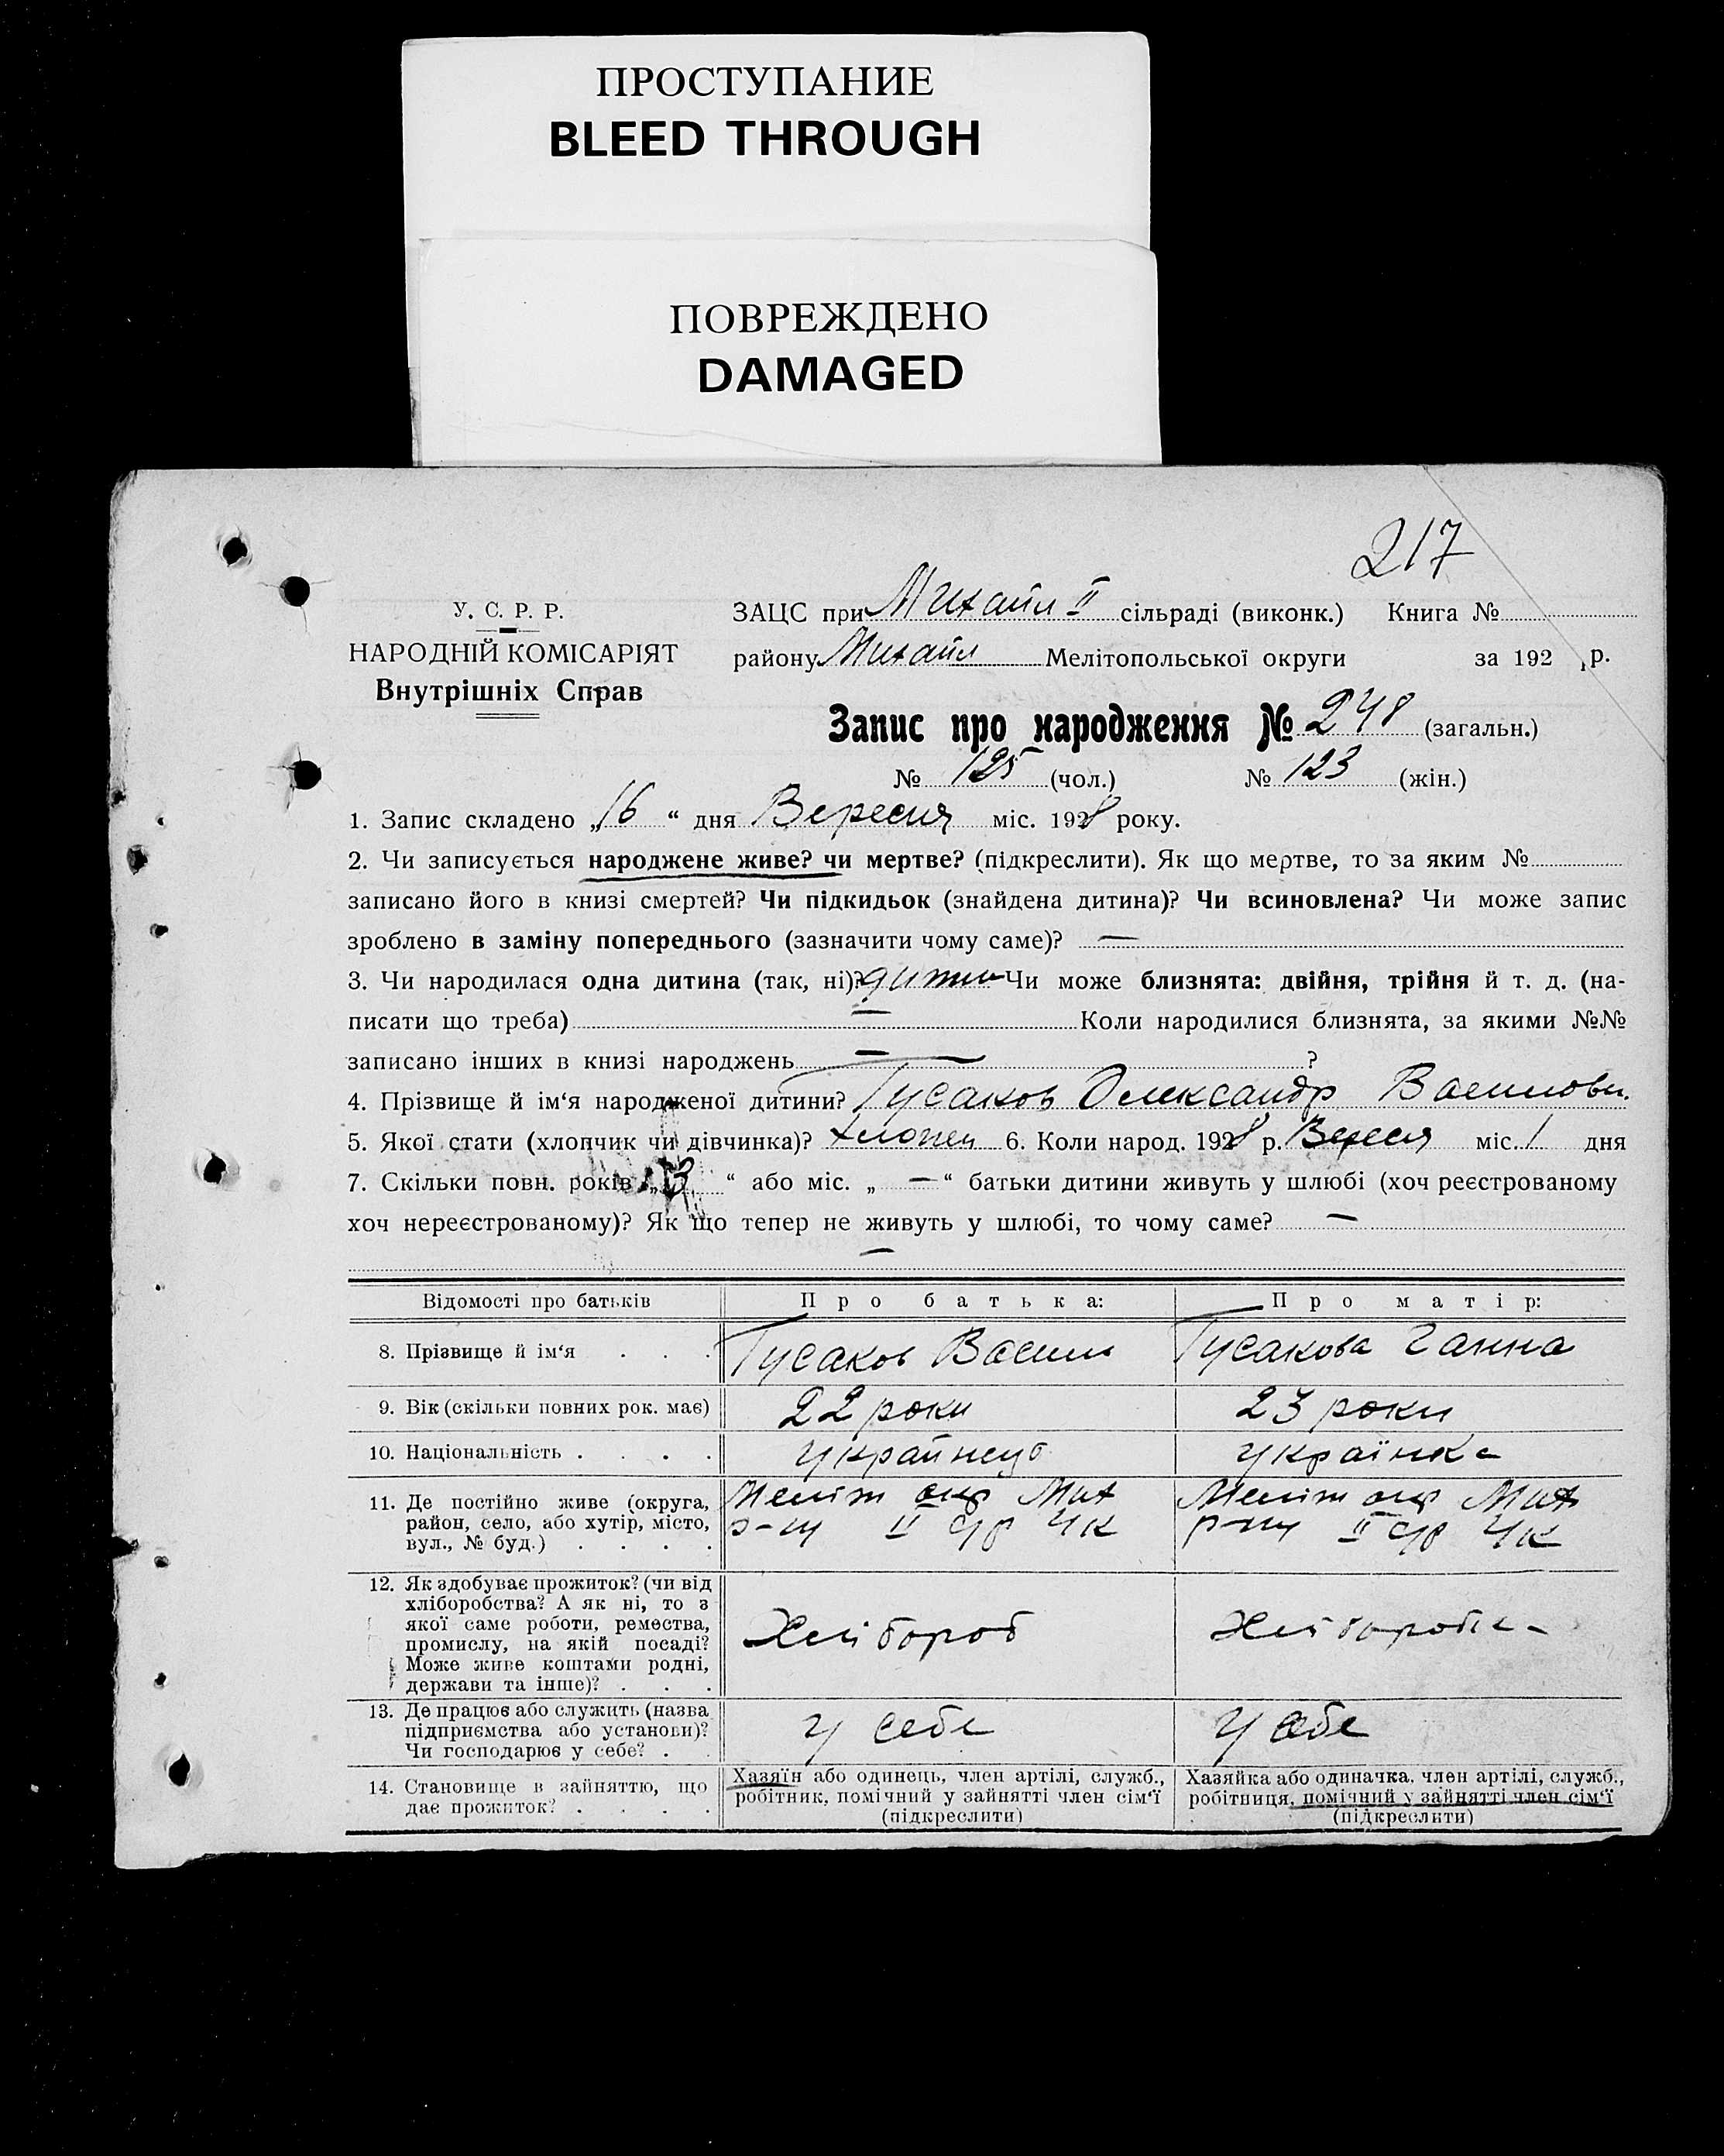 ПРОСТУПАНИЕ
BLEED THROUGH
ПОВРЕЖДЕНО
DAMAGED
217
У. С. Р. Р.
НАРОДНІЙ КОМІСАРІЯТ
Внутрішніх Справ
ЗАЦС при Михайл II сільраді (виконк.) Книга №
району Михайл Мелітопольської округи за 192 р.
Запис про народження № 248 (загальн.)
№ 125 (чол.) № 123 (жін.)
1. Запис складено „16“ дня Вересня міс. 1928 року.
2. Чи записується народжене живе? чи мертве? (підкреслити). Як що мертве, то за яким №
записано його в книзі смертей? Чи підкидьок (знайдена дитина)? Чи всиновлена? Чи може запис
зроблено в заміну попереднього (зазначити чому саме)? —
3. Чи народилася одна дитина (так, ні)? Чи може близнята: двійня, трійня й т. д. (на-
писати що треба) — Коли народилися близнята, за якими №№
записано інших в книзі народжень — ?
4. Прізвище й ім‘я народженої дитини? Гусаков Олександр Васильов.
5. Якої стати (хлопчик чи дівчинка)? хлопец 6. Коли народ. 1928 р. Вересня міс. 1 дня
7. Скільки повн. років „3“ або міс. „—“ батьки дитини живуть у шлюбі (хоч реєстрованому
хоч нереєстрованому)? Як що тепер не живуть у шлюбі, то чому саме? —
—
Відомості про батьків Про батька: Про матір:
8. Прізвище й ім‘я . . . Гусаков Василь Гусакова Ганна
9. Вік (скільки повних рок. має) 22 роки 23 роки
10. Національність . . . . українка
11. Де постійно живе (округа, Меліт окр Мих Меліт окр Мих
район, село, або хутір, місто, р-ну II с/р р-ну II с/р
вул., № буд.) . . . .
12. Як здобуває прожиток? (чи від
хліборобства? А як ні, то з
якої саме роботи, ремества,
промислу, на якій посаді? Хлібороб
Може живе коштами родні,
держави та інше)? . . .
13. Де працює або служить (назва
підприємства або установи)? у себе у себе
Чи господарює у себе? . .
14. Становище в зайняттю, що
дає прожиток? . . . .
Хазяїн або одинець, член артілі, служб.,
робітник, помічний у зайнятті член сім‘ї
(підкреслити)
Хазяйка або одиначка, член артілі, служб.,
робітниця, помічний у зайнятті член сім‘ї
(підкреслити)